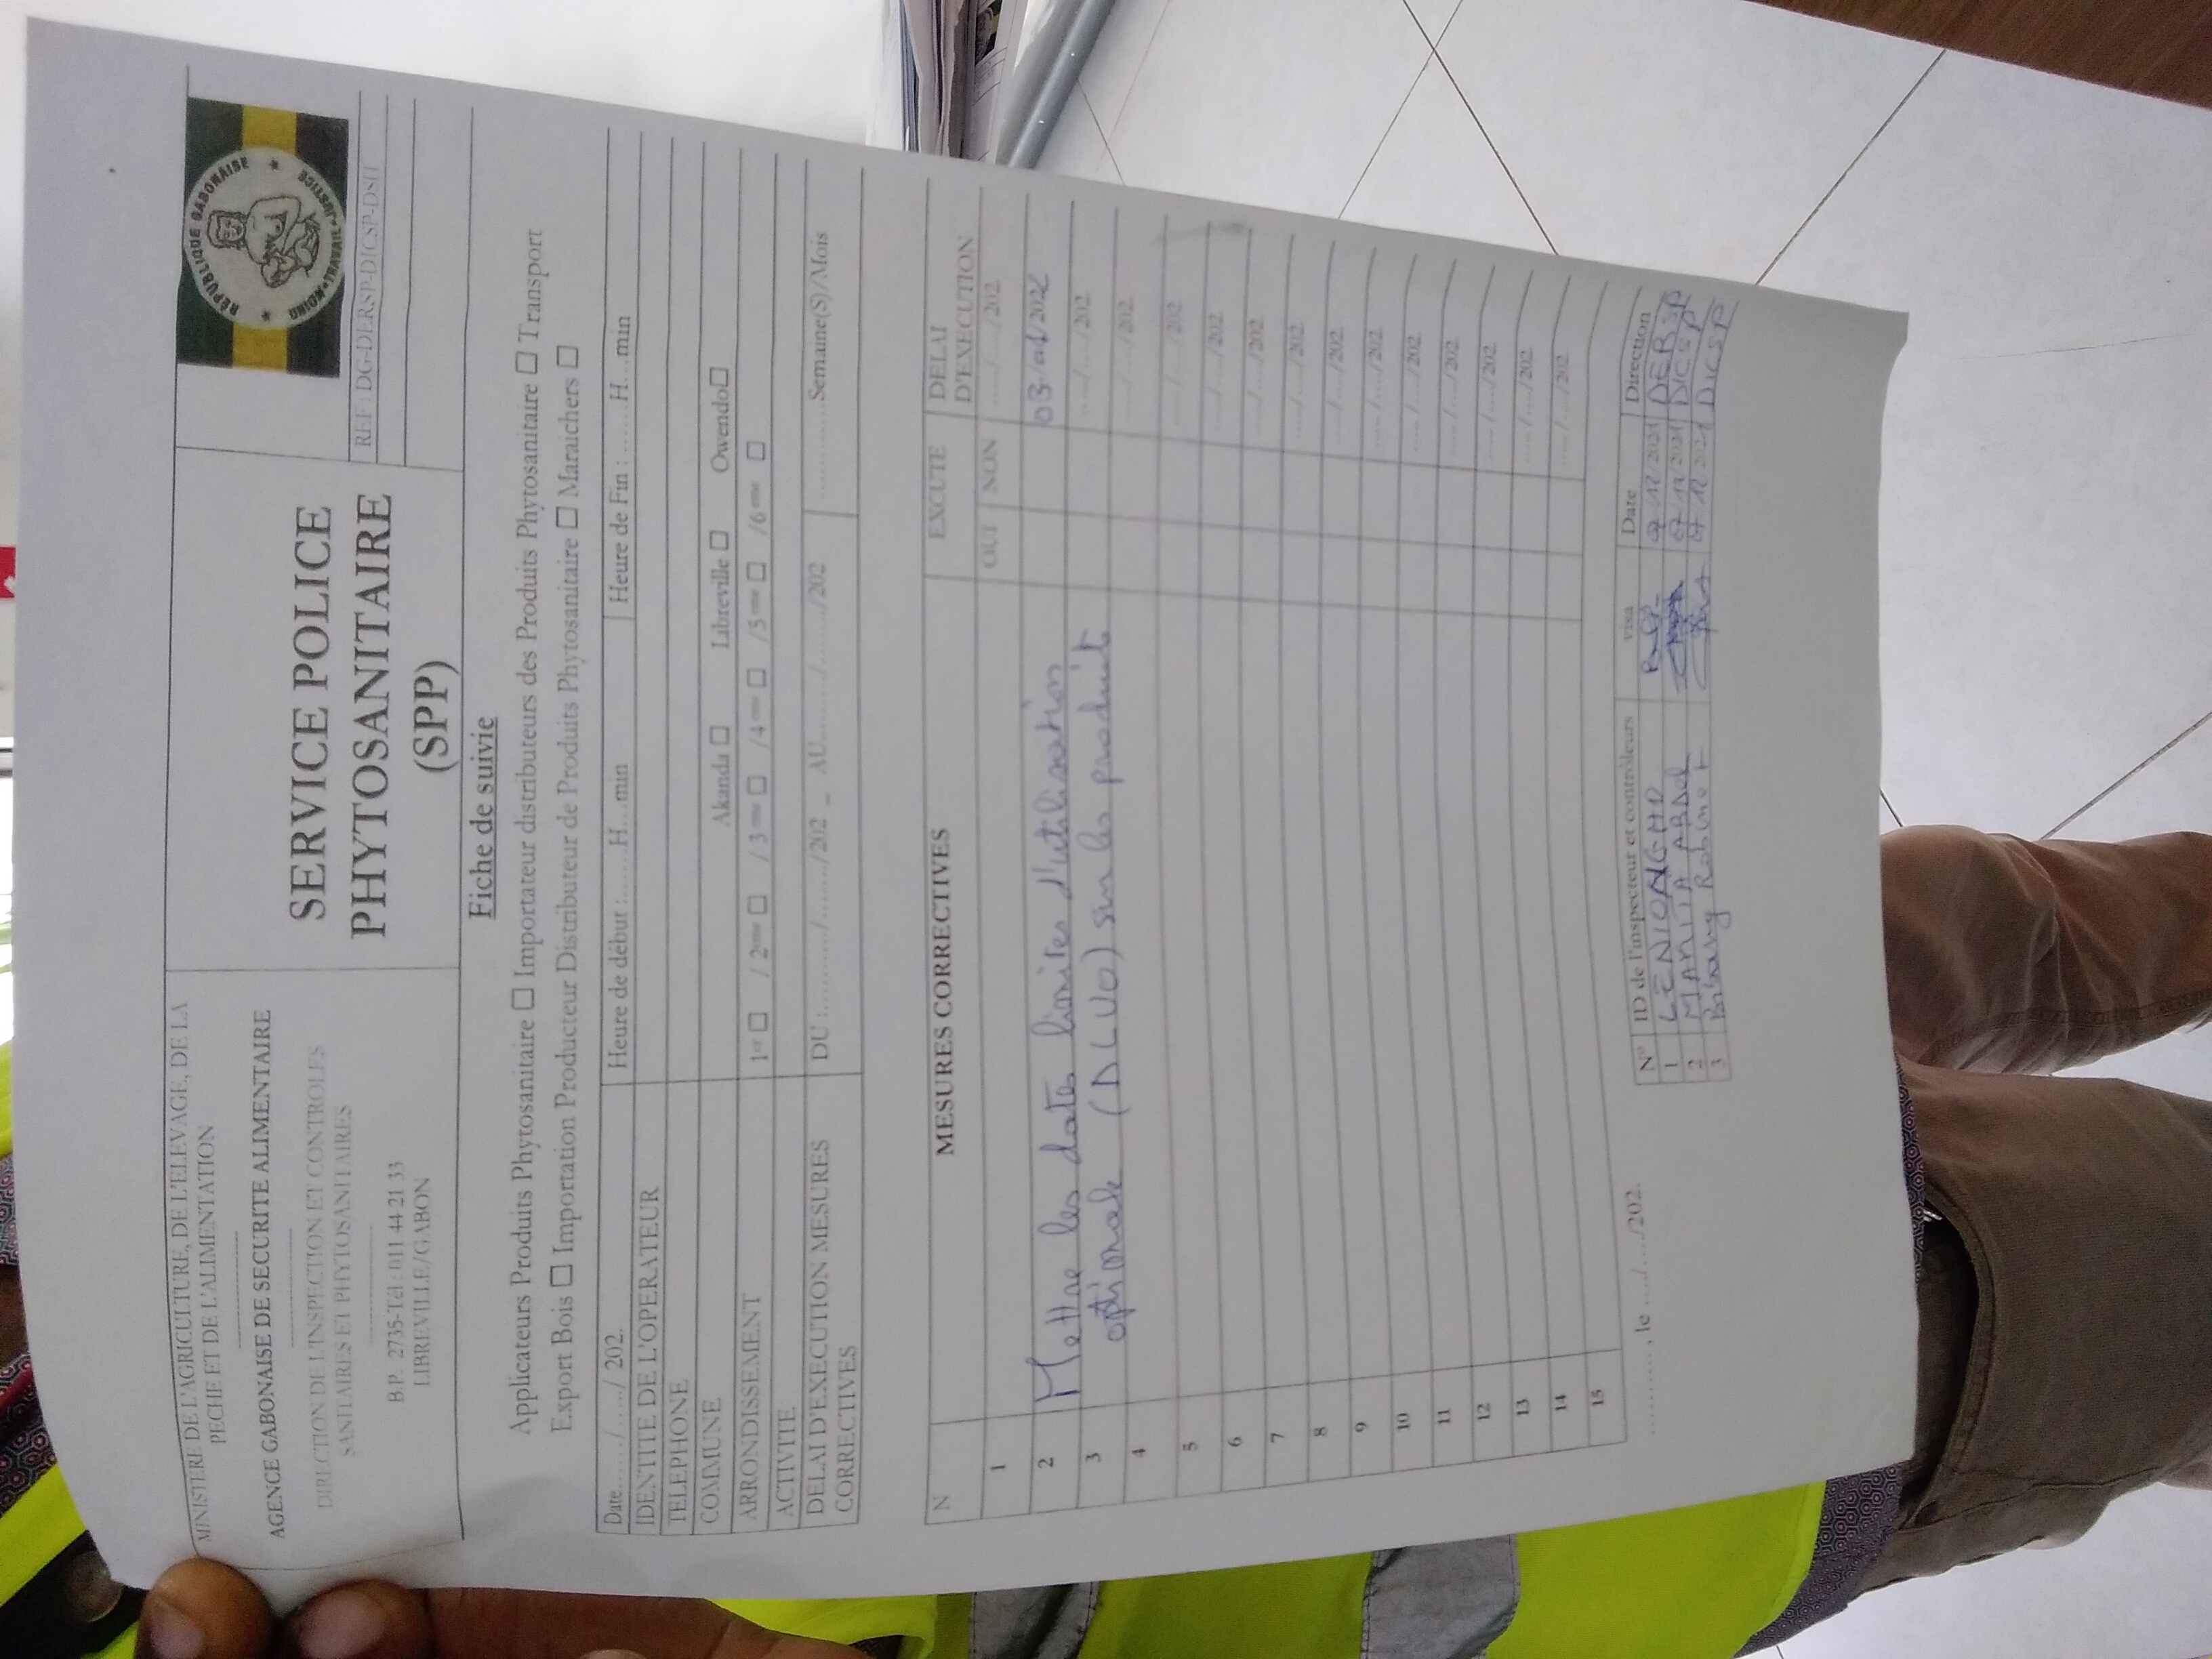 MINISTERE DE L'AGRICULTURE, DE L'ELEVAGE, DE LA
PECHE ET DE L'ALIMENTATION
AGENCE GABONAISE DE SECURITE ALIMENTAIRE
DIRECTION DE L'INSPECTION ET CONTROLES
SANITAIRES ET PHYTOSANITAIRES
B P. 2735-Tél : 011 44 21 33
LIBREVILLE/GABON
SERVICE POLICE
PHYTOSANITAIRE
(SPP)
RÉPUBLIQUE GABONAISE
UNION•TRAVAIL•JUSTICE
REF : DG-DERSP-DICSP-DSIT
Fiche de suivie
Applicateurs Produits Phytosanitaire ☐ Importateur distributeurs des Produits Phytosanitaire ☐ Transport
Export Bois ☐ Importation Producteur Distributeur de Produits Phytosanitaire ☐ Maraichers ☐
Date....../....../ 202. Heure de début :......H...min Heure de Fin : ......H...min
IDENTITE DE L'OPERATEUR
TELEPHONE
COMMUNE Akanda ☐ Libreville ☐ Owendo☐
ARRONDISSEMENT 1er ☐ / 2ème ☐ / 3 ème ☐ /4 ème ☐ /5 ème ☐ /6 ème ☐
ACTIVITE
DELAI D'EXECUTION MESURES CORRECTIVES DU :........../......../202 _ AU........../......../202 ............Semaine(S)/Mois
N MESURES CORRECTIVES EXCUTE DELAI D'EXECUTION
OUI NON
1 ...../...../202
2 Mettre les dates limites d'utilisation 03/01/2022
3 optimale (DLUO) sur les produits ...../...../202
4 ...../...../202
5 ...../...../202
6 ...../...../202
7 ...../...../202
8 ...../...../202
9 ...../...../202
10 ...../...../202
11 ...../...../202
12 ...../...../202
13 ...../...../202
14 ...../...../202
15 ...../...../202
..........., le ..../..../202.
N° ID de l'inspecteur et contrôleurs visa Date Direction
1 07/12/2021 DERSP
2 ABDEL 07/12/2021 DICSP
3 07/12/2021 DICSP